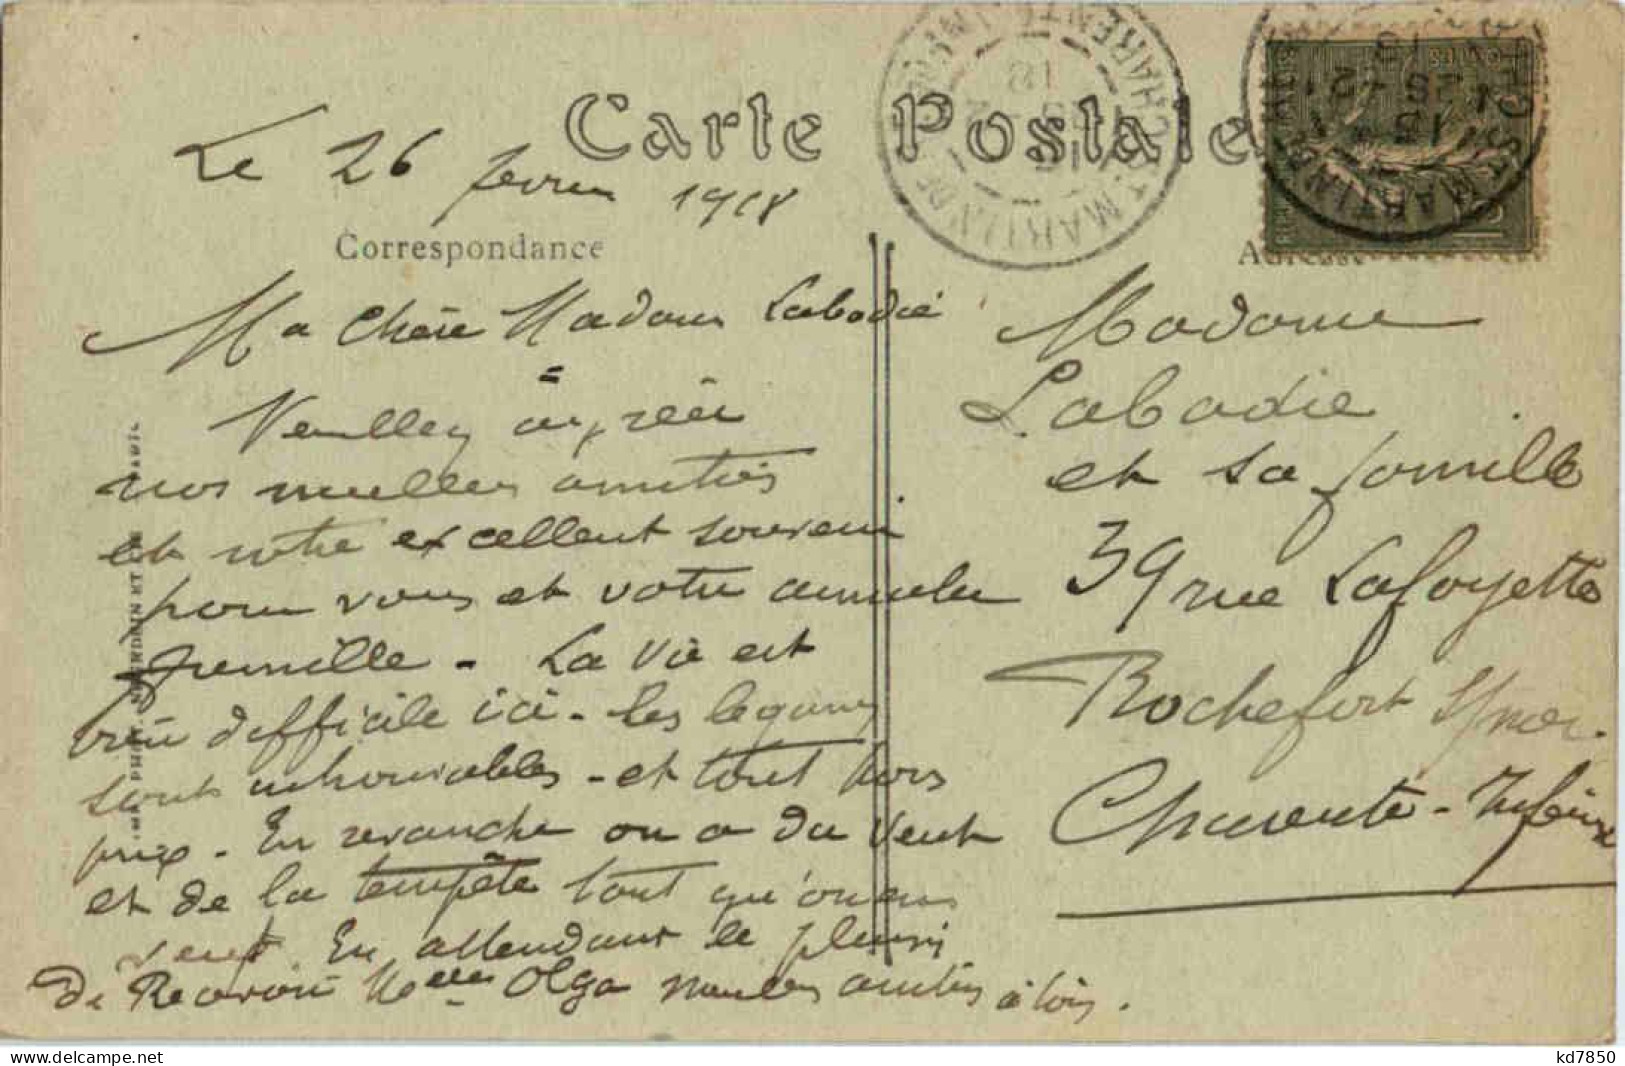 Carte Postale
Le 26 fevrier 1918
Correspondance
Adresse
ST MARTIN DE RÉ
CHARENTE INF
18
Ma Chère Madame Labadie
=
Veuillez agréer
nos meilleures amitiés
et notre excellent souvenir
pour vous et votre aimable
famille - La vie est
bien difficile ici - les legumes
sont inabordables - et tout hors
prix - En revanche on a du vent
et de la tempête tant qu'on en
veut. En attendant le plaisir
de Revoir Melle Olga meilleures amitiés à tous.
Madame
Labadie
et sa famille
39 rue Lafayette
Rochefort s/mer.
Charente-Inférieure
kd7850
delcampe.net